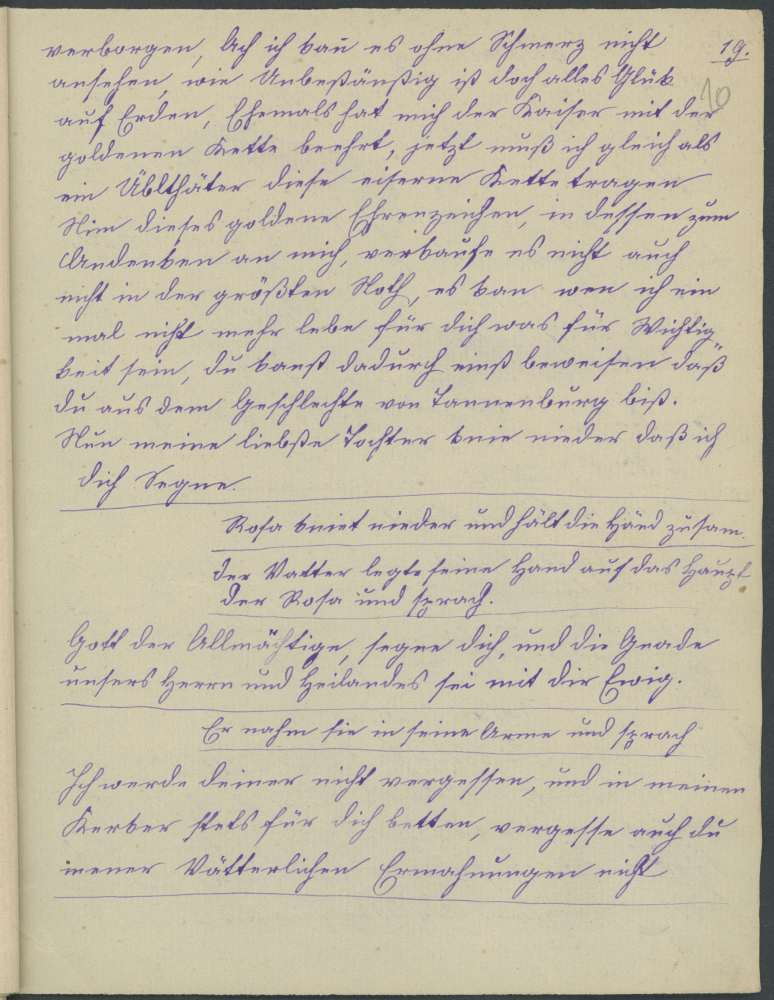 verborgen, Ach ich kan es ohne Schmerz nicht 19.
ansehen, wie Unbeständig ist doch alles Glük
10
auf Erden, Ehemals hat mich der Kaiser mit der
goldenen Kette beehrt, jetzt muß ich gleich als
ein Üblthäter diese eiserne Kette tragen
Nim dieses goldene Ehrenzeichen, in dessen zum
Andenken an mich, verkaufe es nicht auch
nicht in der größten Noth, es kan wen ich ein
mal nicht mehr lebe für dich was für Wichtig
keit sein, du kanst dadurch einst beweisen daß
du aus dem Geschlechte von Tannenburg bist.
Nun meine liebste Tochter knie nieder daß ich
dich Segne.
Rosa kniet nieder und hält die Händ zusam.
Der Vatter legte seine Hand auf das Haupt
der Rosa und sprach.
Gott der Allmächtige, segne dich, und die Gnade
unsers Herrn und Heilandes sei mit dir Ewig.
Er nahm sie in seine Arme und sprach
Ich werde deiner nicht vergessen, und in meinen
Kerker stets für dich betten, vergesse auch du
mener Vätterlichen Ermahnungen nicht